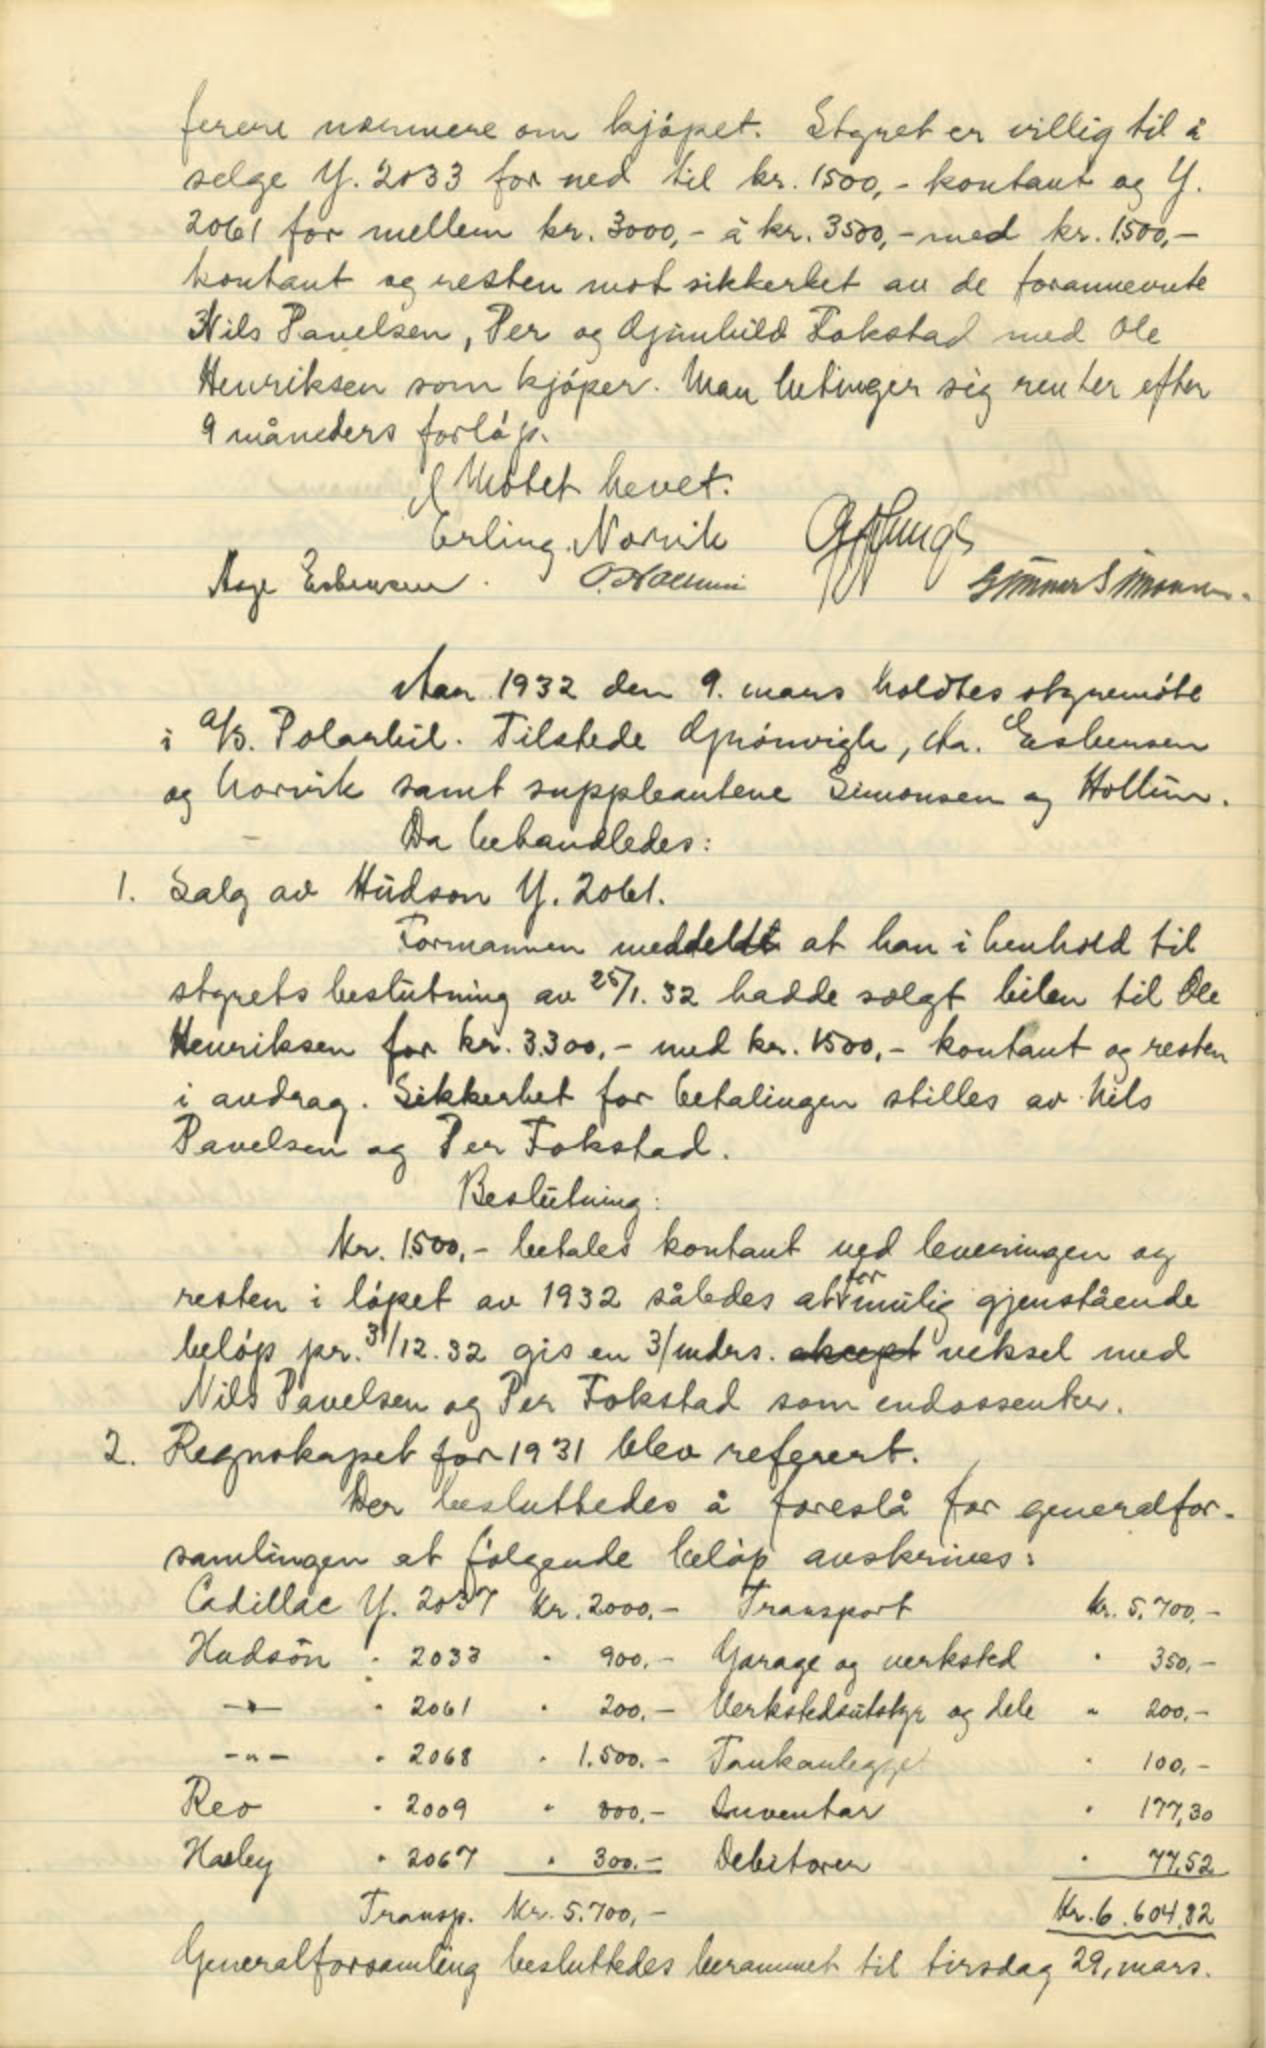 ferere nærmere om kjøpet. Styret er villig til å
selge Y. 2033 for ned til kr. 1500,- kontant og Y.
2061 for mellem kr. 3000,- à kr. 3500,- med kr. 1.500,-
kontant og resten mot sikkerhet av de forannevnte
Nils Pavelsen, Per og Gunhild Fokstad med Ole
Henriksen som kjøper. Man betinger sig renter efter
9 måneders forløp.
Møtet hevet.
Erling Norvik
Aage Esbensen. O. Hollum Gunnar Simonsen.
Aar 1932 den 9. mars holdtes styremøte
i A/S. Polarbil. Tilstede Grønvigh, Aa. Esbensen
og Norvik samt suppleantene Simonsen og Hollum.
Da behandledes:
1. Salg av Hudson Y. 2061.
Formannen meddelte at han i henhold til
styrets beslutning av 25/1. 32 hadde solgt bilen til Ole
Henriksen for kr. 3.300,- med kr. 1500,- kontant og resten
i avdrag. Sikkerhet for betalingen stilles av Nils
Pavelsen og Per Fokstad.
Beslutning:
Kr. 1.500,- betales kontant ved leveringen og
resten i løpet av 1932 således at for mulig gjenstående
beløp pr. 31/12.32 gis en 3/mdrs. aksept veksel med
Nils Pavelsen og Per Fokstad som endossenter.
2. Regnskapet for 1931 blev referert.
Der besluttedes å foreslå for generalfor-
samlingen at følgende beløp avskrives:
Cadillac Y. 2037 Kr. 2000.- Transport Kr. 5.700.-
Hudson " 2033 " 900.- Garage og verksted " 350,-
-"- " 2061 " 200.- Verkstedsutstyr og dele " 200.-
-"- " 2068 " 1.500.- Tankanlegget " 100,-
Reo " 2009 " 800,- Inventar " 177,30
Harley " 2067 " 300.- Debitorer " 77,52
Transp. Kr. 5.700,- Kr. 6.604,82
Generalforsamling besluttedes berammet til tirsdag 29. mars.